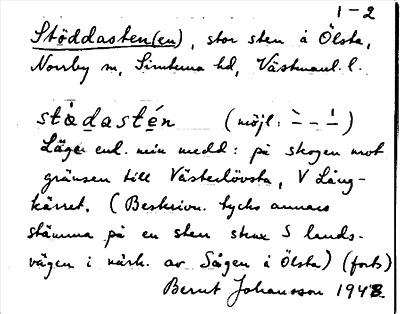 1-2
Stöddasten(en), stor sten å Ölsta,
Norrby sn, Simtuna hd, Västmanl. l.
stȯ̀dastén (möjl: `- - -́)
Läge enl. min medd: på skogen mot
gränsen till Västerlövsta, V Lång-
kärret. (Beskrivn. tycks annars
stämma på en sten strax S lands-
vägen i närh. av Sågen i Ölsta) (forts)
Bernt Johansson 1948.